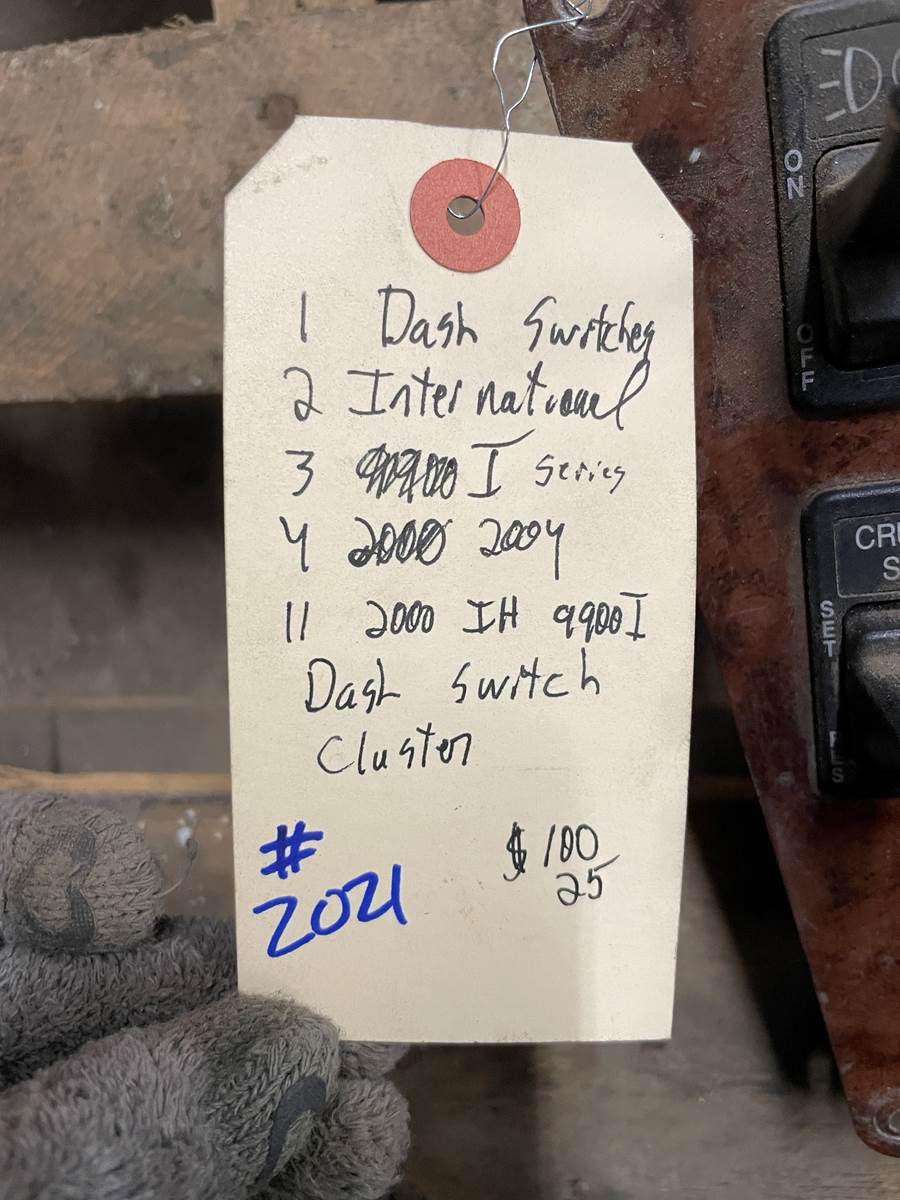 1 Dash Switches
2 International
3 I series
4 2004
11 2000 IH 9900I
Dash Switch
Cluster
#
2021
$100
25
ON
OFF
CRU
S
SET
RES